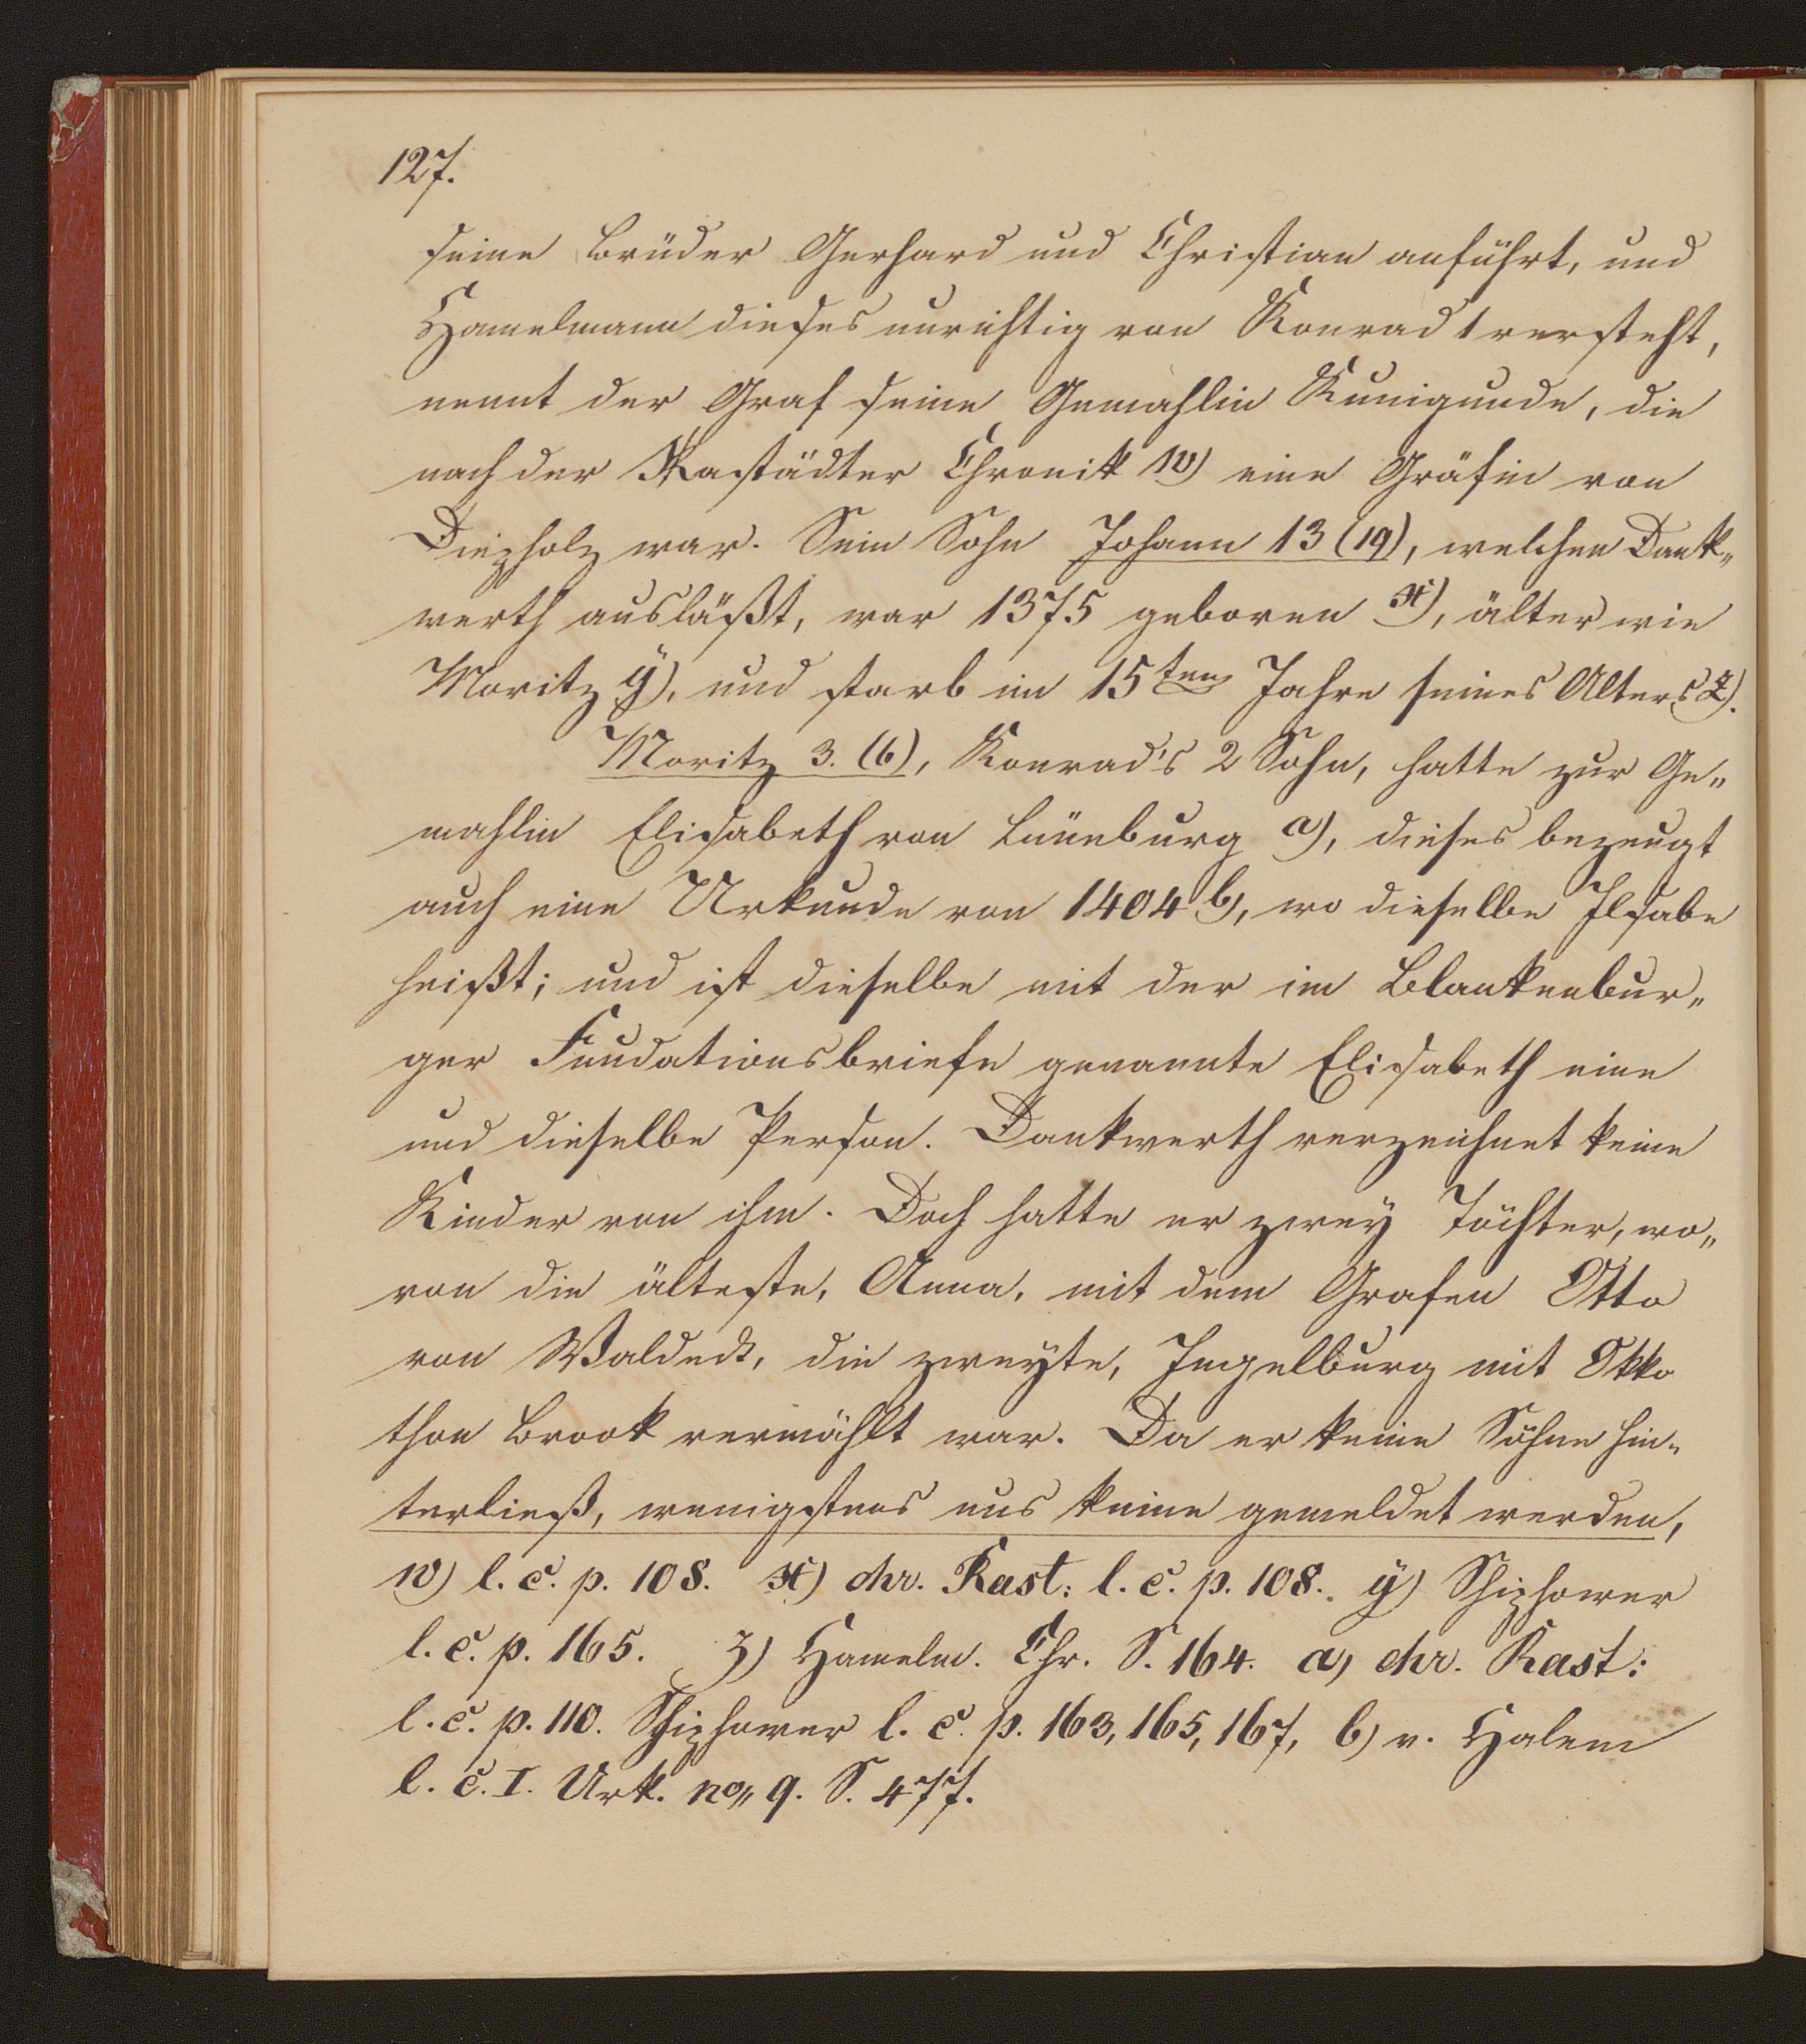 127.
seine Brüder Gerhard und Christian anführt, und
Hamelmann dieses unrichtig von Konrad 1 versteht,
nennt der Graf seine Gemahlin Kunigunde, die
nach der Rastädter Chronik w) eine Gräfin von
Diepholz war. Sein Sohn Johann 13 (19), welchen Dank„
werth ausläßt, war 1375 geboren x), älter wie
Moritz ÿ), und starb im 15ten Jahre seines Alters z).
Moritz 3. (6), Konrad's 2 Sohn, hatte zur Ge„
mahlin Elisabeth von Lüneburg a), dieses bezeugt
auch eine Urkunde von 1404 b), wo dieselbe Ilsabe
heißt; und ist dieselbe mit der im Blankenbur„
ger Fundationsbriefe genannte Elisabeth eine
und dieselbe Person. Dankwerth verzeichnet keine
Kinder von ihm. Doch hatte er zwey Töchter, wo„
von die älteste, Anna, mit dem Grafen Otto
von Waldeck, die zweyte, Ingelburg mit Okko
thon Brook vermählt war. Da er keine Söhne hin„
terließ, wenigstens uns keine gemeldet werden,
w) l. c. p. 108. x) chr. Rast: l. c. p. 108. ÿ) Schiphower
l. c. p. 165. z) Hamelm. Chr. S. 164. a) chr. Rast:
l. c. p. 110. Schiphower l. c. p. 163, 165, 167, b) v. Halem
l. c. I. Urk. no„ 9. S. 477.